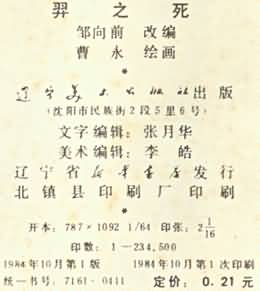 羿之死
邹向前 改编
曹永 绘画
*
辽宁美术出版社出版
(沈阳市民族街2段5里6号)
文字编辑：张月华
美术编辑：李皓
辽宁省新华书店发行
北镇县印刷厂印刷
*
开本：787×1092 1/64 印张：2 1/16
印数：1—234,500
1984年10月第1版 1984年10月第1次印刷
统一书号：7161·0411 定价：0.21元